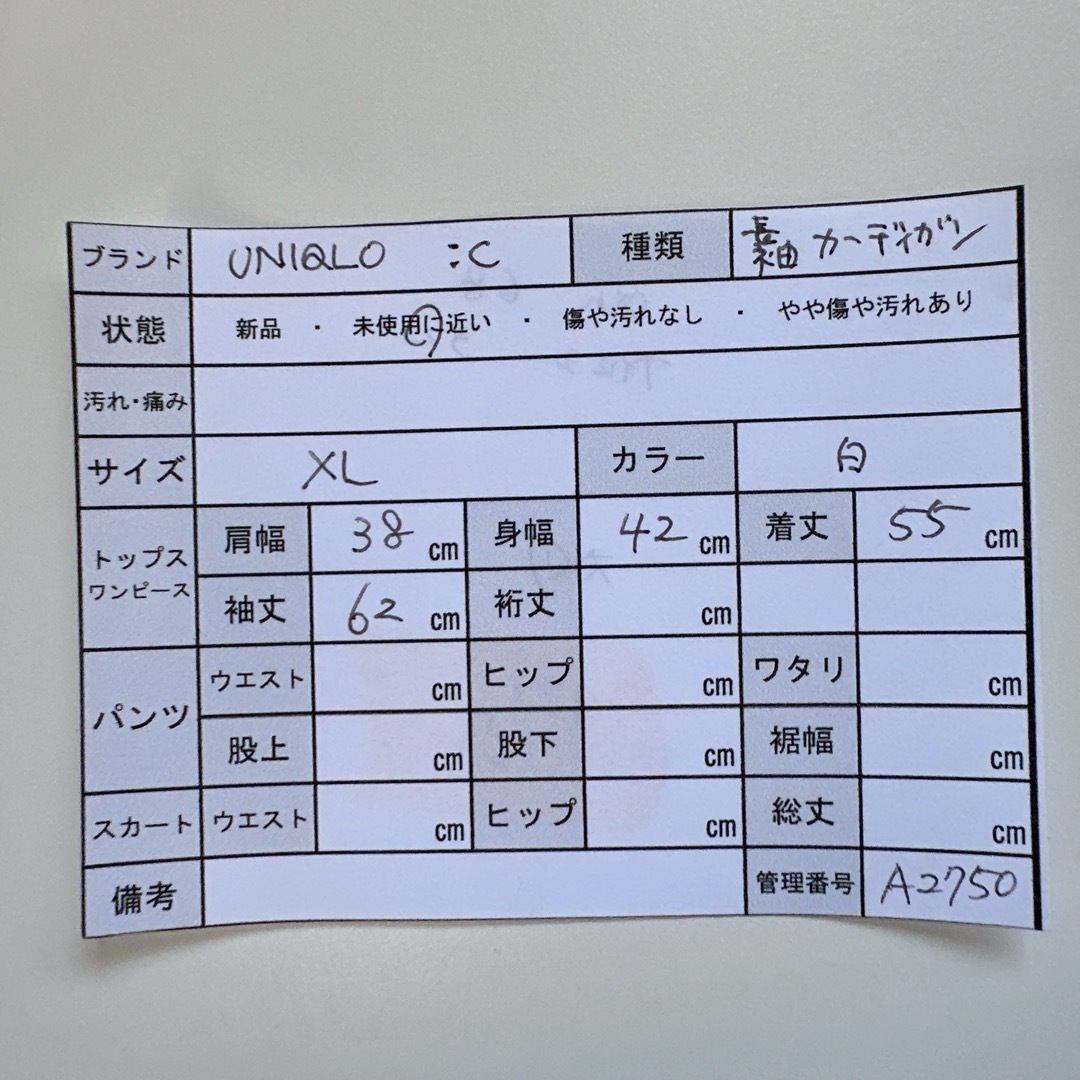 ブランド UNIQLO :C 種類 長袖 カーディガン
状態 新品 ・ 未使用に近い ・ 傷や汚れなし ・ やや傷や汚れあり
汚れ・痛み
サイズ XL カラー 白
トップス ワンピース 肩幅 38 cm 身幅 42 cm 着丈 55 cm
袖丈 62 cm 裄丈 cm
パンツ ウエスト cm ヒップ cm ワタリ cm
股上 cm 股下 cm 裾幅 cm
スカート ウエスト cm ヒップ cm 総丈 cm
備考 管理番号 A2750